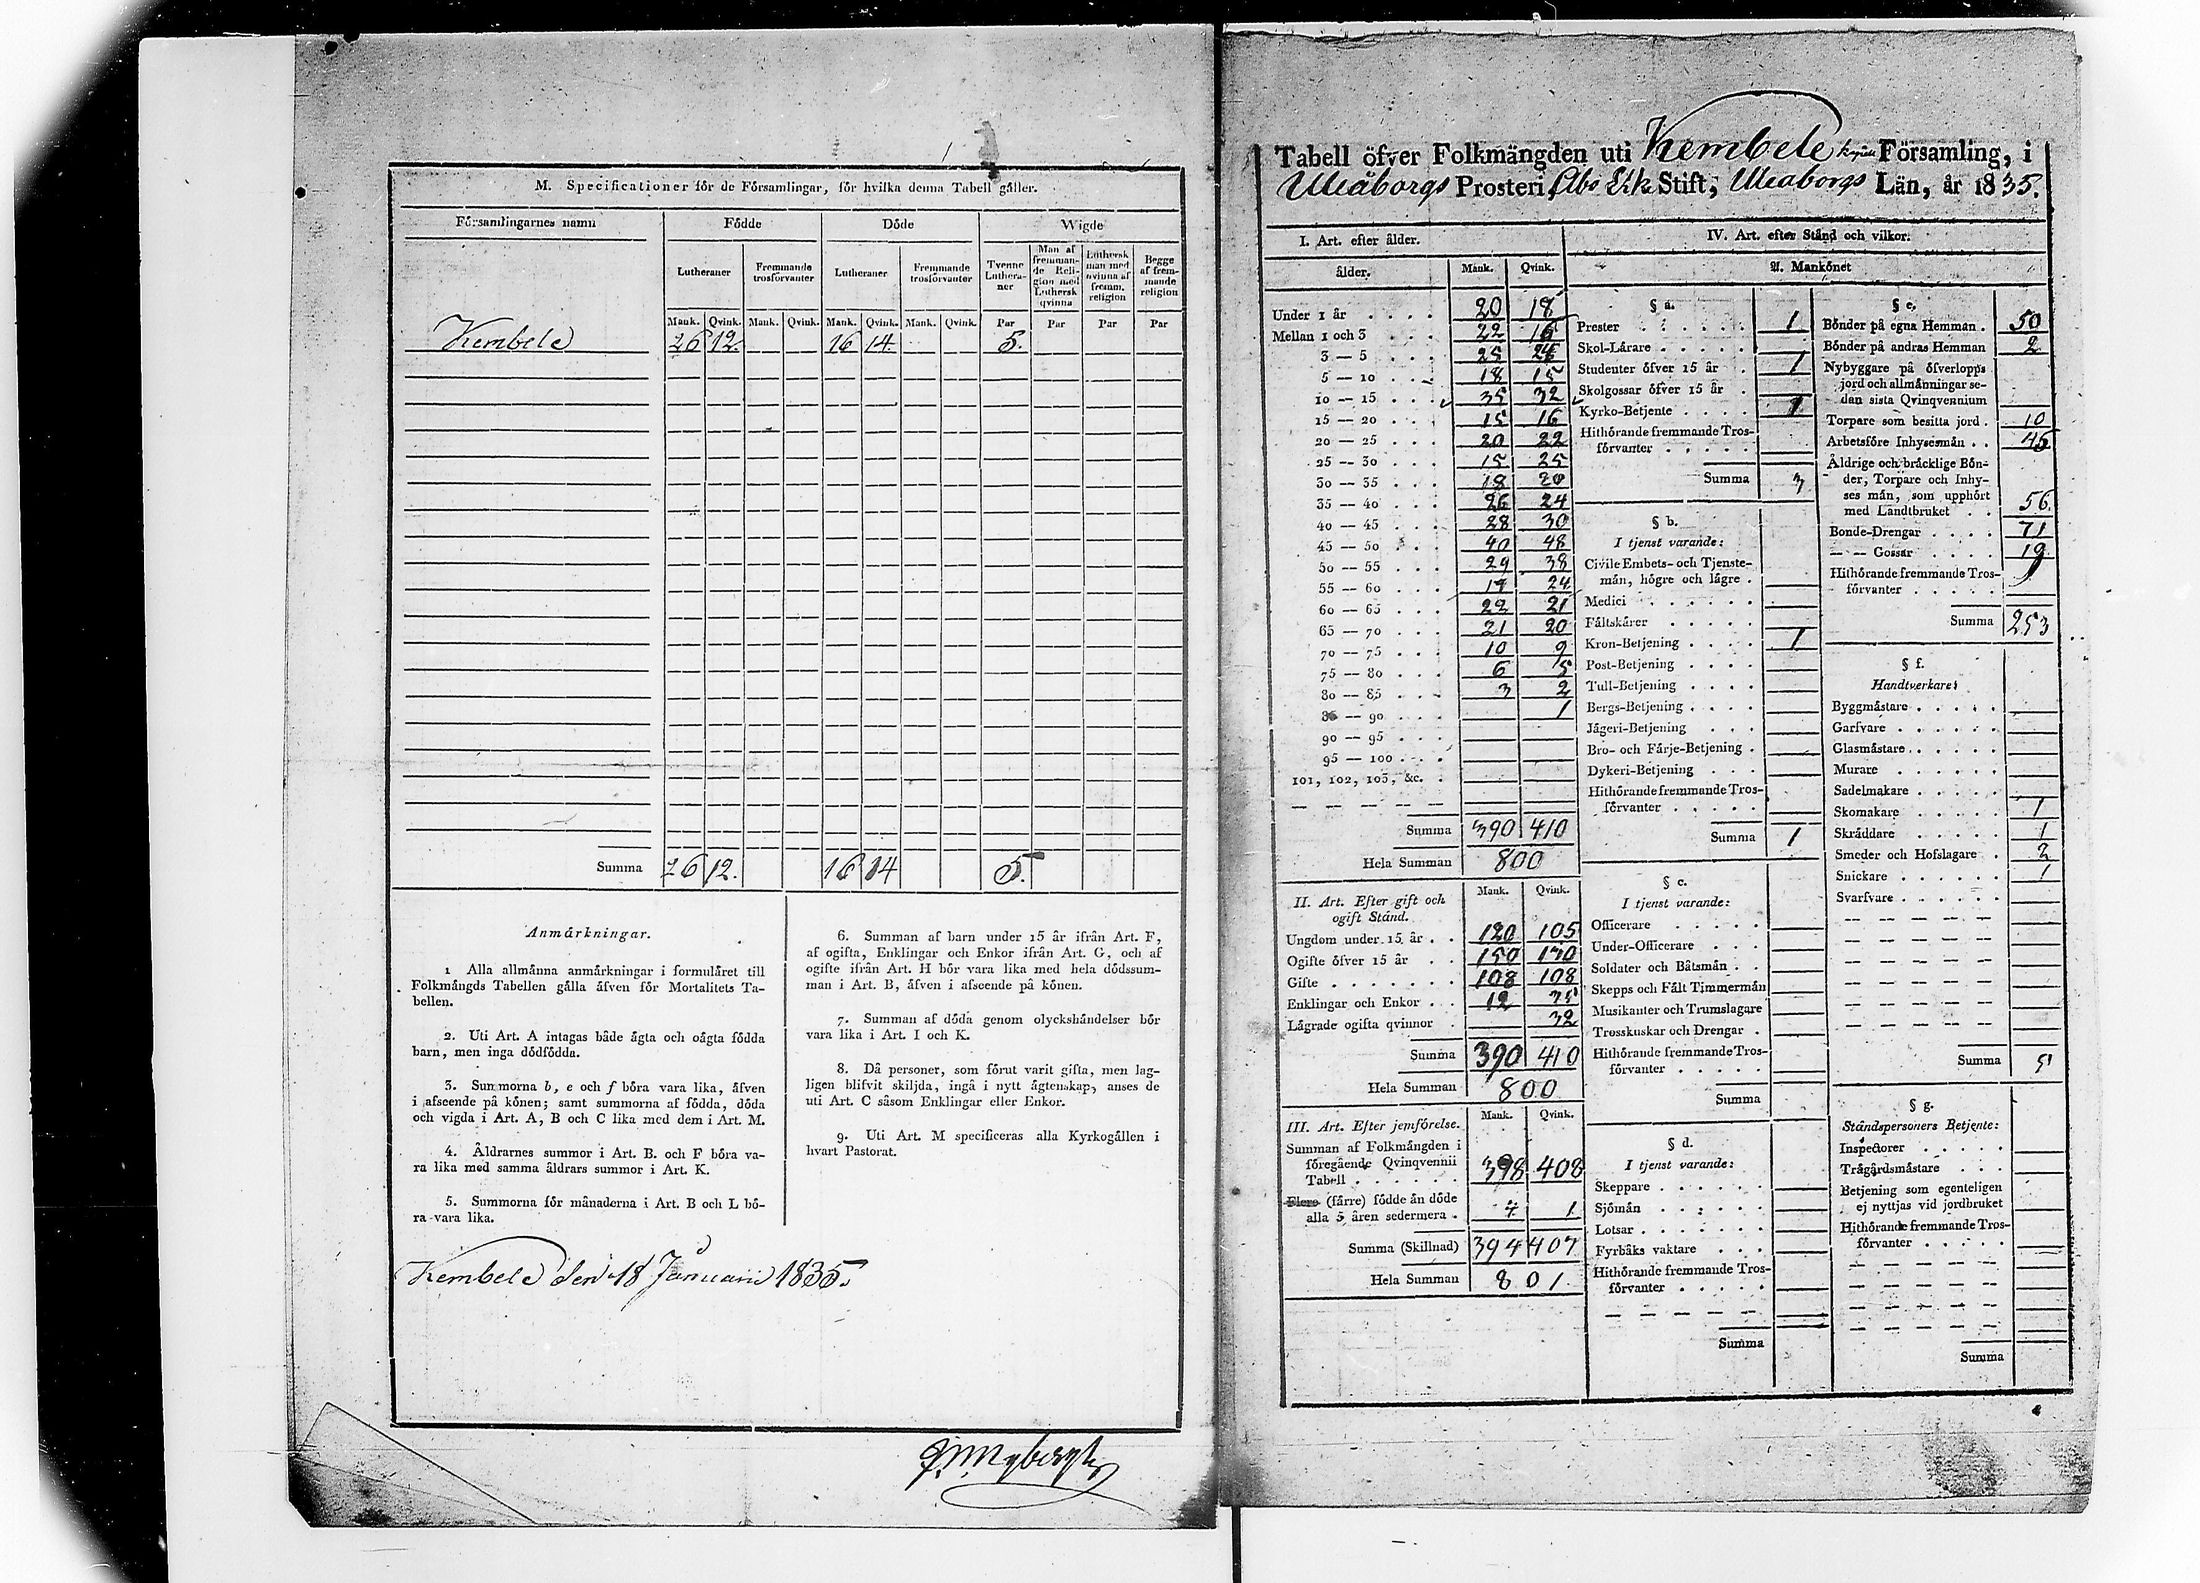 M. Specificationer för de Församlingar, för hvilka denna Tabell gäller.
Församlingarnes namn Födde Döde Wigde
Lutheraner Fremmande trosförvanter Lutheraner Fremmande trosförvanter Tvenne Lutheraner Man af fremmande Religion med Luthersk qvinna Luthersk man med qvinna af fremm. religion Begge af fremmande religion
Mank. Qvink. Mank. Qvink. Mank. Qvink. Mank. Qvink. Par Par Par Par
Kembele 26 12. 16 14 5.
Summa 26 12. 16 14 5.
Anmärkningar.
1 Alla allmänna anmärkningar i formuläret till
Folkmängds Tabellen gälla äfven för Mortalitets Ta-
bellen.
2. Uti Art. A intagas både ägta och oägta födda
barn, men inga dödfödda.
3. Summorna b, e och f böra vara lika, äfven
i afseende på könen; samt summorna af födda, döda
och vigda i Art. A, B och C lika med dem i Art. M.
4. Åldrarnes summor i Art. B. och F böra va-
ra lika med samma åldrars summor i Art. K.
5. Summorna för månaderna i Art. B och L bö-
ra vara lika.
6. Summan af barn under 15 år ifrån Art. F,
af ogifta, Enklingar och Enkor ifrån Art. G, och af
ogifte ifrån Art. H bör vara lika med hela dödssum-
man i Art. B, äfven i afseende på könen.
7. Summan af döda genom olyckshändelser bör
vara lika i Art. I och K.
8. Då personer, som förut varit gifta, men lag-
ligen blifvit skiljda, ingå i nytt ägtenskap, anses de
uti Art. C såsom Enklingar eller Enkor.
9. Uti Art. M specificeras alla Kyrkogällen i
hvart Pastorat.
Kembele den 18 Januarii 1835.
Tabell öfver Folkmängden uti Kembele Församling, i
Uleåborgs Prosteri, Åbo Erk Stift, Uleaborgs Län, år 1835.
I. Art. efter ålder.
ålder. Mank. Qvink.
Under 1 år 20 18
Mellan 1 och 3 22 16
3 — 5 25 24
5 — 10 18 15
10 — 15 35 32
15 — 20 15 16
20 — 25 20 22
25 — 30 15 25
30 — 35 18 20
35 — 40 26 24
40 — 45 28 30
45 — 50 40 48
50 — 55 29 38
55 — 60 17 24
60 — 65 22 21
65 — 70 21 20
70 — 75 10 9
75 — 80 6 5
80 — 85 3 2
85 — 90 1
90 — 95
95 — 100
101, 102, 103, &c.
Summa 390 410
Hela Summan 800
II. Art. Efter gift och
ogift Stånd. Mank. Qvink.
Ungdom under 15 år 120 105
Ogifte öfver 15 år 150 130
Gifte 108 108
Enklingar och Enkor 12 35
Lägrade ogifta qvinnor 32
Summa 390 410
Hela Summan 800
III. Art. Efter jemförelse. Mank. Qvink.
Summan af Folkmängden i
föregående Qvinqvennii
Tabell 398 408
Flere (färre) födde än döde
alla 5 åren sedermera 4 1
Summa (Skillnad) 394 407
Hela Summan 801
IV. Art. efter Stånd och vilkor.
A. Mankönet
§ a.
Prester 1
Skol-Lärare
Studenter öfver 15 år 1
Skolgossar öfver 15 år
Kyrko-Betjente 1
Hithörande fremmande Tros-
förvanter
Summa 3
§ b.
I tjenst varande:
Civile Embets- och Tjenste-
män, högre och lägre
Medici
Fältskärer
Kron-Betjening 1
Post-Betjening
Tull-Betjening
Bergs-Betjening
Jägeri-Betjening
Bro- och Färje-Betjening
Dykeri-Betjening
Hithörande fremmande Tros-
förvanter
Summa 1
§ c.
I tjenst varande:
Officerare
Under-Officerare
Soldater och Båtsmän
Skepps och Fält Timmermän
Musikanter och Trumslagare
Trosskuskar och Drengar
Hithörande fremmande Tros-
förvanter
Summa
§ d.
I tjenst varande:
Skeppare
Sjömän
Lotsar
Fyrbåks vaktare
Hithörande fremmande Tros-
förvanter
Summa
§ e.
Bönder på egna Hemman 50
Bönder på andras Hemman 2
Nybyggare på öfverlopps
jord och allmänningar se-
dan sista Qvinqvennium
Torpare som besitta jord 10
Arbetsföre Inhysesmän 45
Åldrige och bräcklige Bön-
der, Torpare och Inhy-
ses män, som upphört
med Landtbruket 56
Bonde-Drengar 71
— — Gossar 19
Hithörande fremmande Tros-
förvanter
Summa 253
§ f.
Handtverkare:
Byggmästare
Garfvare
Glasmästare
Murare
Sadelmakare
Skomakare 1
Skräddare 1
Smeder och Hofslagare 2
Snickare 1
Svarfvare
Summa 5
§ g.
Ståndspersoners Betjente:
Inspectorer
Trägårdsmästare
Betjening som egenteligen
ej nyttjas vid jordbruket
Hithörande fremmande Tros-
förvanter
Summa